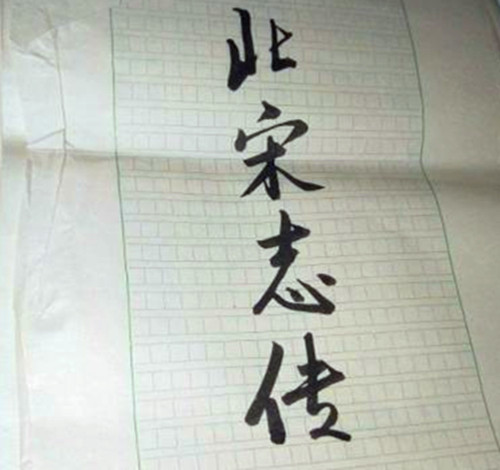 北宋志传